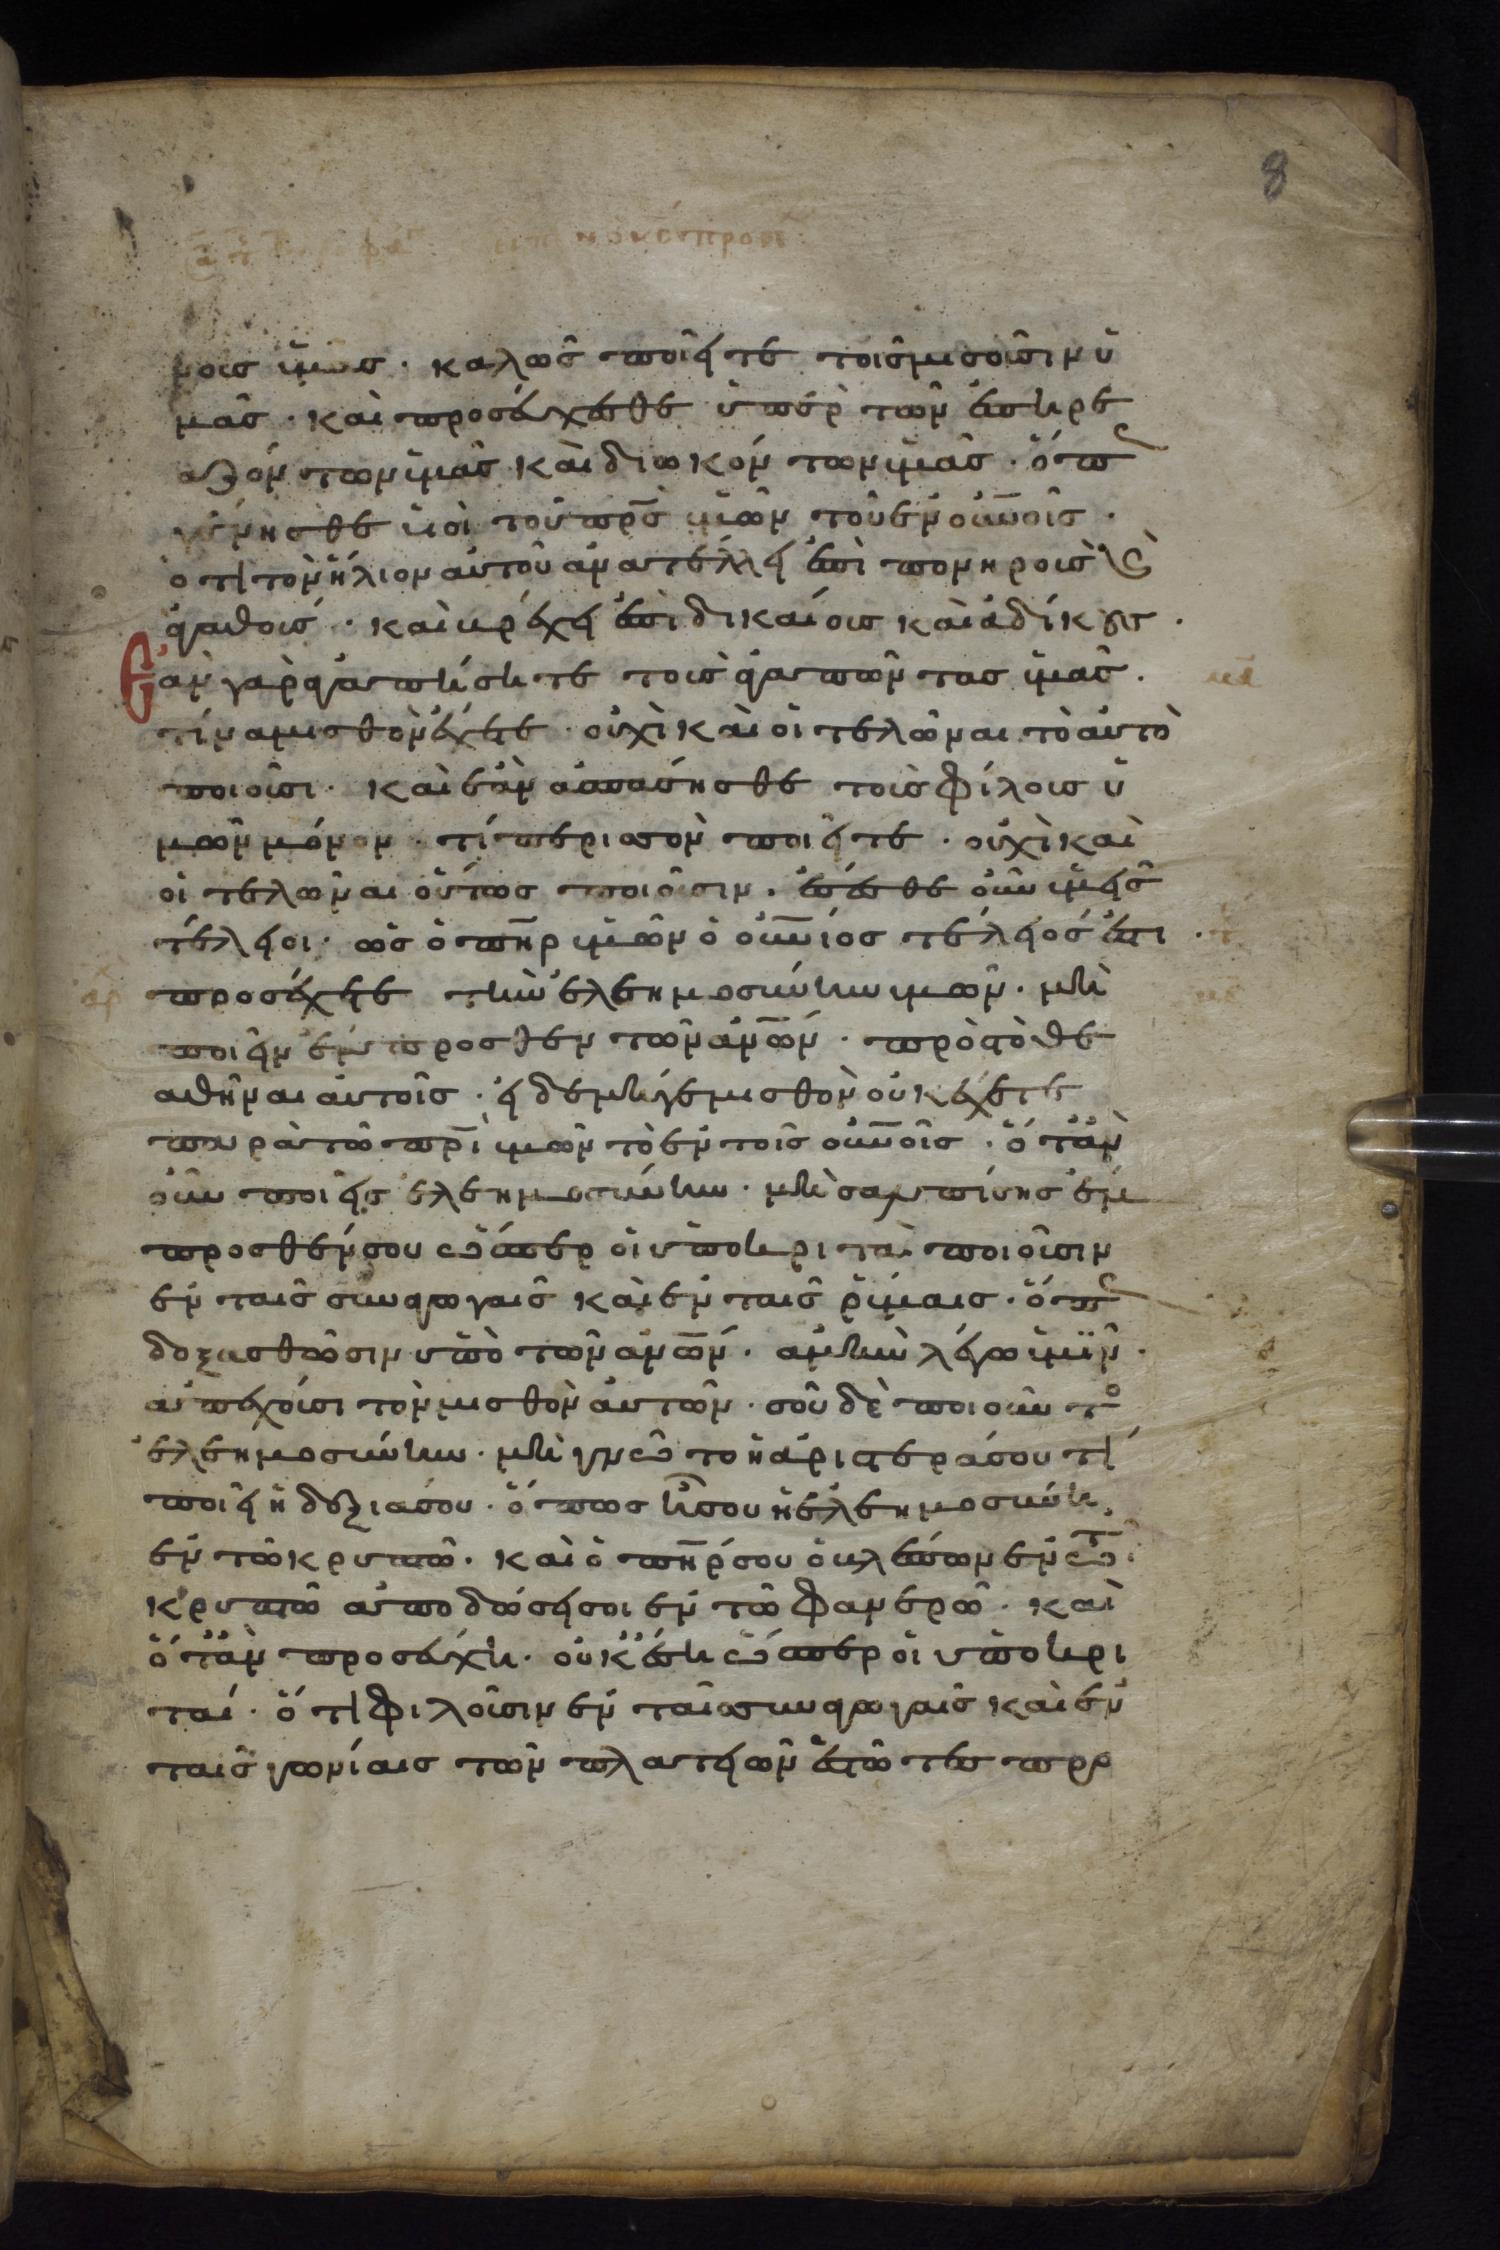 8
μοις ὑμᾶς · καλῶς ποιεῖτε τοῖς μισοῦσιν ὑ
μᾶς · καὶ προσεύχεσθε ὑπὲρ τῶν ἐπηρε
αζόντων ὑμᾶς καὶ διωκόντων ὑμᾶς · ὅπως
γένησθε υἱοὶ τοῦ πρς ὑμῶν τοῦ ἐν οὐνοῖς ·
ὅτι τὸν ἥλιον αὐτοῦ ἀνατέλλει ἐπὶ πονηροὺς καὶ
ἀγαθούς · καὶ βρέχει ἐπὶ δικαίους καὶ ἀδίκους ·
Ἐὰν γὰρ ἀγαπήσητε τοὺς ἀγαπῶντας ὑμᾶς ·
τίνα μισθὸν ἔχετε · οὐχὶ καὶ οἱ τελῶναι τὸ αὐτὸ
ποιοῦσι · καὶ ἐὰν ἀσπάσησθε τοὺς φίλους ὑ
μῶν μόνον · τί περισσὸν ποιεῖτε · οὐχὶ καὶ
οἱ τελῶναι οὕτως ποιοῦσιν · ἔσεσθε οὖν ὑμεῖς
τέλειοι · ὡς ὁ πηρ ὑμῶν ὁ οὐνιος τέλειός ἐστι ·
προσέχετε τὴν ἐλεημοσύνην ὑμῶν · μὴ
ποιεῖν ἔμπροσθεν τῶν ἀνων · πρὸς τὸ θε
αθῆναι αὐτοῖς · εἰ δὲ μήγε μισθὸν οὐκ ἔχετε
παρὰ τῷ πρι ὑμῶν τῷ ἐν τοῖς οὐνοῖς · ὅταν
οὖν ποιεῖς ἐλεημοσύνην · μὴ σαλπίσῃς ἔμ
προσθέν σου ὥσπερ οἱ ὑποκριταὶ ποιοῦσιν
ἐν ταῖς συναγωγαῖς καὶ ἐν ταῖς ῥύμαις · ὅπως
δοξασθῶσιν ὑπὸ τῶν ἀνων · ἀμὴν λέγω ὑμῖν ·
ἀπέχουσι τὸν μισθὸν αὐτῶν · σοῦ δὲ ποιοῦντο
ἐλεημοσύνην · μὴ γνώτω ἡ ἀριστερά σου τί
ποιεῖ ἡ δεξιά σου · ὅπως ᾖ σου ἡ ἐλεημοσύνη
ἐν τῷ κρυπτῷ · καὶ ὁ πηρ σου ὁ βλέπων ἐν τῷ
κρυπτῷ ἀποδώσει σοι ἐν τῷ φανερῷ · καὶ
ὅταν προσεύχῃ · οὐκ ἔσῃ ὥσπερ οἱ ὑποκρι
ταί · ὅτι φιλοῦσιν ἐν ταῖς συναγωγαῖς καὶ ἐν
ταῖς γωνίαις τῶν πλατειῶν ἑστῶτες προ